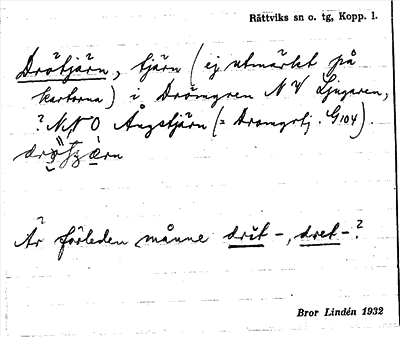 Rättviks sn o. tg, Kopp. l.
Drötjärn, tjärn (ej utmärkt på
kartorna) i Drömyren NV Ljugaren,
? NNO Ångstjärn (= Dromgstj. G104).
Är förleden månne drit-, dret-?
Bror Lindén 1932